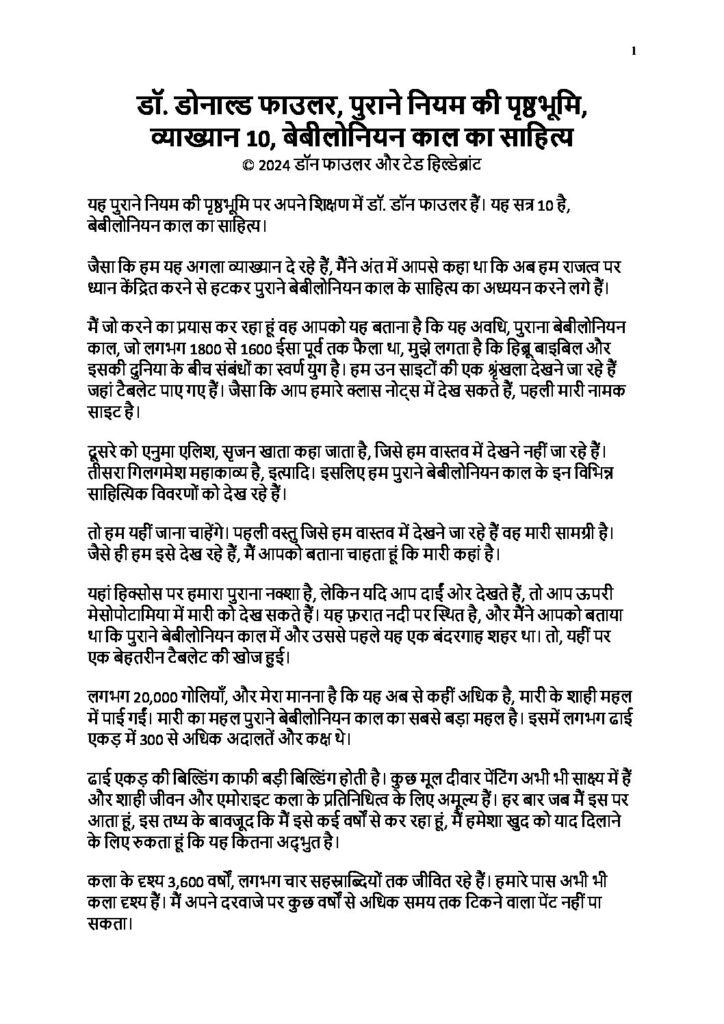 1
डॉ. डोनाल्ड फाउलर, पुराने नियम की पृष्ठभूमि,
व्याख्यान 10, बेबीलोनियन काल का साहित्य
© 2024 डॉन फाउलर और टेड हिल्डेब्रांट
यह पुराने नियम की पृष्ठभूमि पर अपने शिक्षण में डॉ. डॉन फाउलर हैं। यह सत्र 10 है,
बेबीलोनियन काल का साहित्य।
जैसा कि हम यह अगला व्याख्यान दे रहे हैं, मैंने अंत में आपसे कहा था कि अब हम राजत्व पर
ध्यान केंद्रित करने से हटकर पुराने बेबीलोनियन काल के साहित्य का अध्ययन करने लगे हैं।
मैं जो करने का प्रयास कर रहा हूं वह आपको यह बताना है कि यह अवधि, पुराना बेबीलोनियन
काल, जो लगभग 1800 से 1600 ईसा पूर्व तक फैला था, मुझे लगता है कि हिब्रू बाइबिल और
इसकी दुनिया के बीच संबंधों का स्वर्ण युग है। हम उन साइटों की एक श्रृंखला देखने जा रहे हैं
जहां टैबलेट पाए गए हैं। जैसा कि आप हमारे क्लास नोट्स में देख सकते हैं, पहली मारी नामक
साइट है।
दूसरे को एनुमा एलिश, सृजन खाता कहा जाता है, जिसे हम वास्तव में देखने नहीं जा रहे हैं।
तीसरा गिलगमेश महाकाव्य है, इत्यादि। इसलिए हम पुराने बेबीलोनियन काल के इन विभिन्न
साहित्यिक विवरणों को देख रहे हैं।
तो हम यहीं जाना चाहेंगे। पहली वस्तु जिसे हम वास्तव में देखने जा रहे हैं वह मारी सामग्री है।
जैसे ही हम इसे देख रहे हैं, मैं आपको बताना चाहता हूं कि मारी कहां है।
यहां हिक्सोस पर हमारा पुराना नक्शा है, लेकिन यदि आप दाईं ओर देखते हैं, तो आप ऊपरी
मेसोपोटामिया में मारी को देख सकते हैं। यह फ़रात नदी पर स्थित है, और मैंने आपको बताया
था कि पुराने बेबीलोनियन काल में और उससे पहले यह एक बंदरगाह शहर था। तो, यहीं पर
एक बेहतरीन टैबलेट की खोज हुई।
लगभग 20,000 गोलियाँ, और मेरा मानना है कि यह अब से कहीं अधिक है, मारी के शाही महल
में पाई गईं। मारी का महल पुराने बेबीलोनियन काल का सबसे बड़ा महल है। इसमें लगभग ढाई
एकड़ में 300 से अधिक अदालतें और कक्ष थे।
ढाई एकड़ की बिल्डिंग काफी बड़ी बिल्डिंग होती है। कुछ मूल दीवार पेंटिंग अभी भी साक्ष्य में हैं
और शाही जीवन और एमोराइट कला के प्रतिनिधित्व के लिए अमूल्य हैं। हर बार जब मैं इस पर
आता हूं, इस तथ्य के बावजूद कि मैं इसे कई वर्षों से कर रहा हूं, मैं हमेशा खुद को याद दिलाने
के लिए रुकता हूं कि यह कितना अद्भुत है।
कला के दृश्य 3,600 वर्षों, लगभग चार सहस्राब्दियों तक जीवित रहे हैं। हमारे पास अभी भी
कला दृश्य हैं। मैं अपने दरवाजे पर कुछ वर्षों से अधिक समय तक टिकने वाला पेंट नहीं पा
सकता।